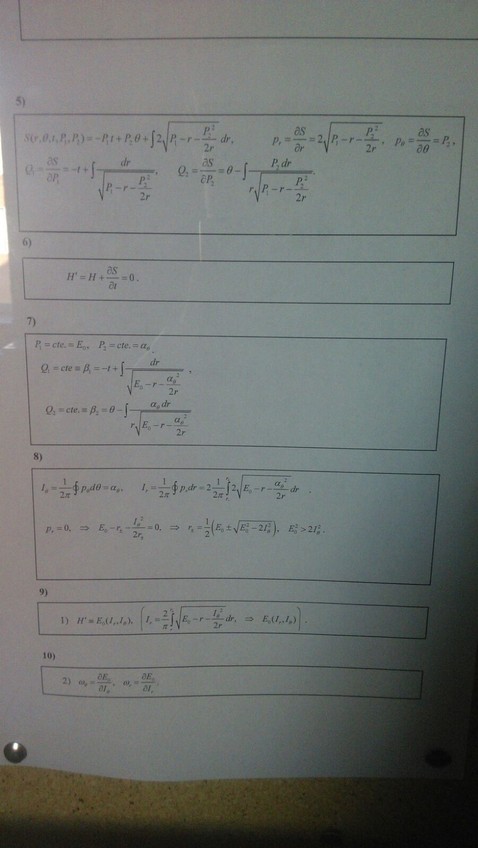 5)
S(r,θ,t,P₁,P₂) = −P₁t + P₂θ + ∫2√(P₁ − r − P₂²/2r) dr,   p_r = ∂S/∂r = 2√(P₁ − r − P₂²/2r),   p_θ = ∂S/∂θ = P₂,
Q₁ = ∂S/∂P₁ = −t + ∫ dr/√(P₁ − r − P₂²/2r),   Q₂ = ∂S/∂P₂ = θ − ∫ P₂ dr/(r√(P₁ − r − P₂²/2r)).
6)
H' = H + ∂S/∂t = 0.
7)
P₁ = cte. = E₀, P₂ = cte. = α_θ.
Q₁ = cte ≡ β₁ = −t + ∫ dr/√(E₀ − r − α_θ²/2r),
Q₂ = cte. ≡ β₂ = θ − ∫ α_θ dr/(r√(E₀ − r − α_θ²/2r))
8)
I_θ = 1/2π ∮ p_θ dθ = α_θ,   I_r = 1/2π ∮ p_r dr = 2 1/2π ∫2√(E₀ − r − α_θ²/2r) dr.
p_r = 0, ⇒ E₀ − r_± − I_θ²/2r_± = 0, ⇒ r_± = 1/2(E₀ ± √(E₀² − 2I_θ²)), E₀² > 2I_θ².
9)
1) H' ≡ E₀(I_r, I_θ), (I_r = 2/π ∫√(E₀ − r − I_θ²/2r) dr, ⇒ E₀(I_r, I_θ)).
10)
2) ω_θ = ∂E₀/∂I_θ, ω_r = ∂E₀/∂I_r.